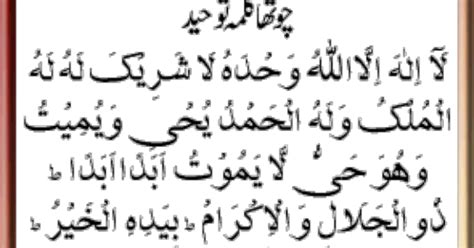 چوتھا کلمہ توحید
لَآ اِلٰهَ اِلَّا اللّٰهُ وَحْدَهٗ لَا شَرِيْكَ لَهٗ لَهُ
الْمُلْكُ وَلَهُ الْحَمْدُ يُحْىٖ وَيُمِيْتُ
وَهُوَ حَىٌّ لَّا يَمُوْتُ اَبَدًا اَبَدًا ط
ذُو الْجَلَالِ وَالْاِكْرَامِ ط بِيَدِهِ الْخَيْرُ ط